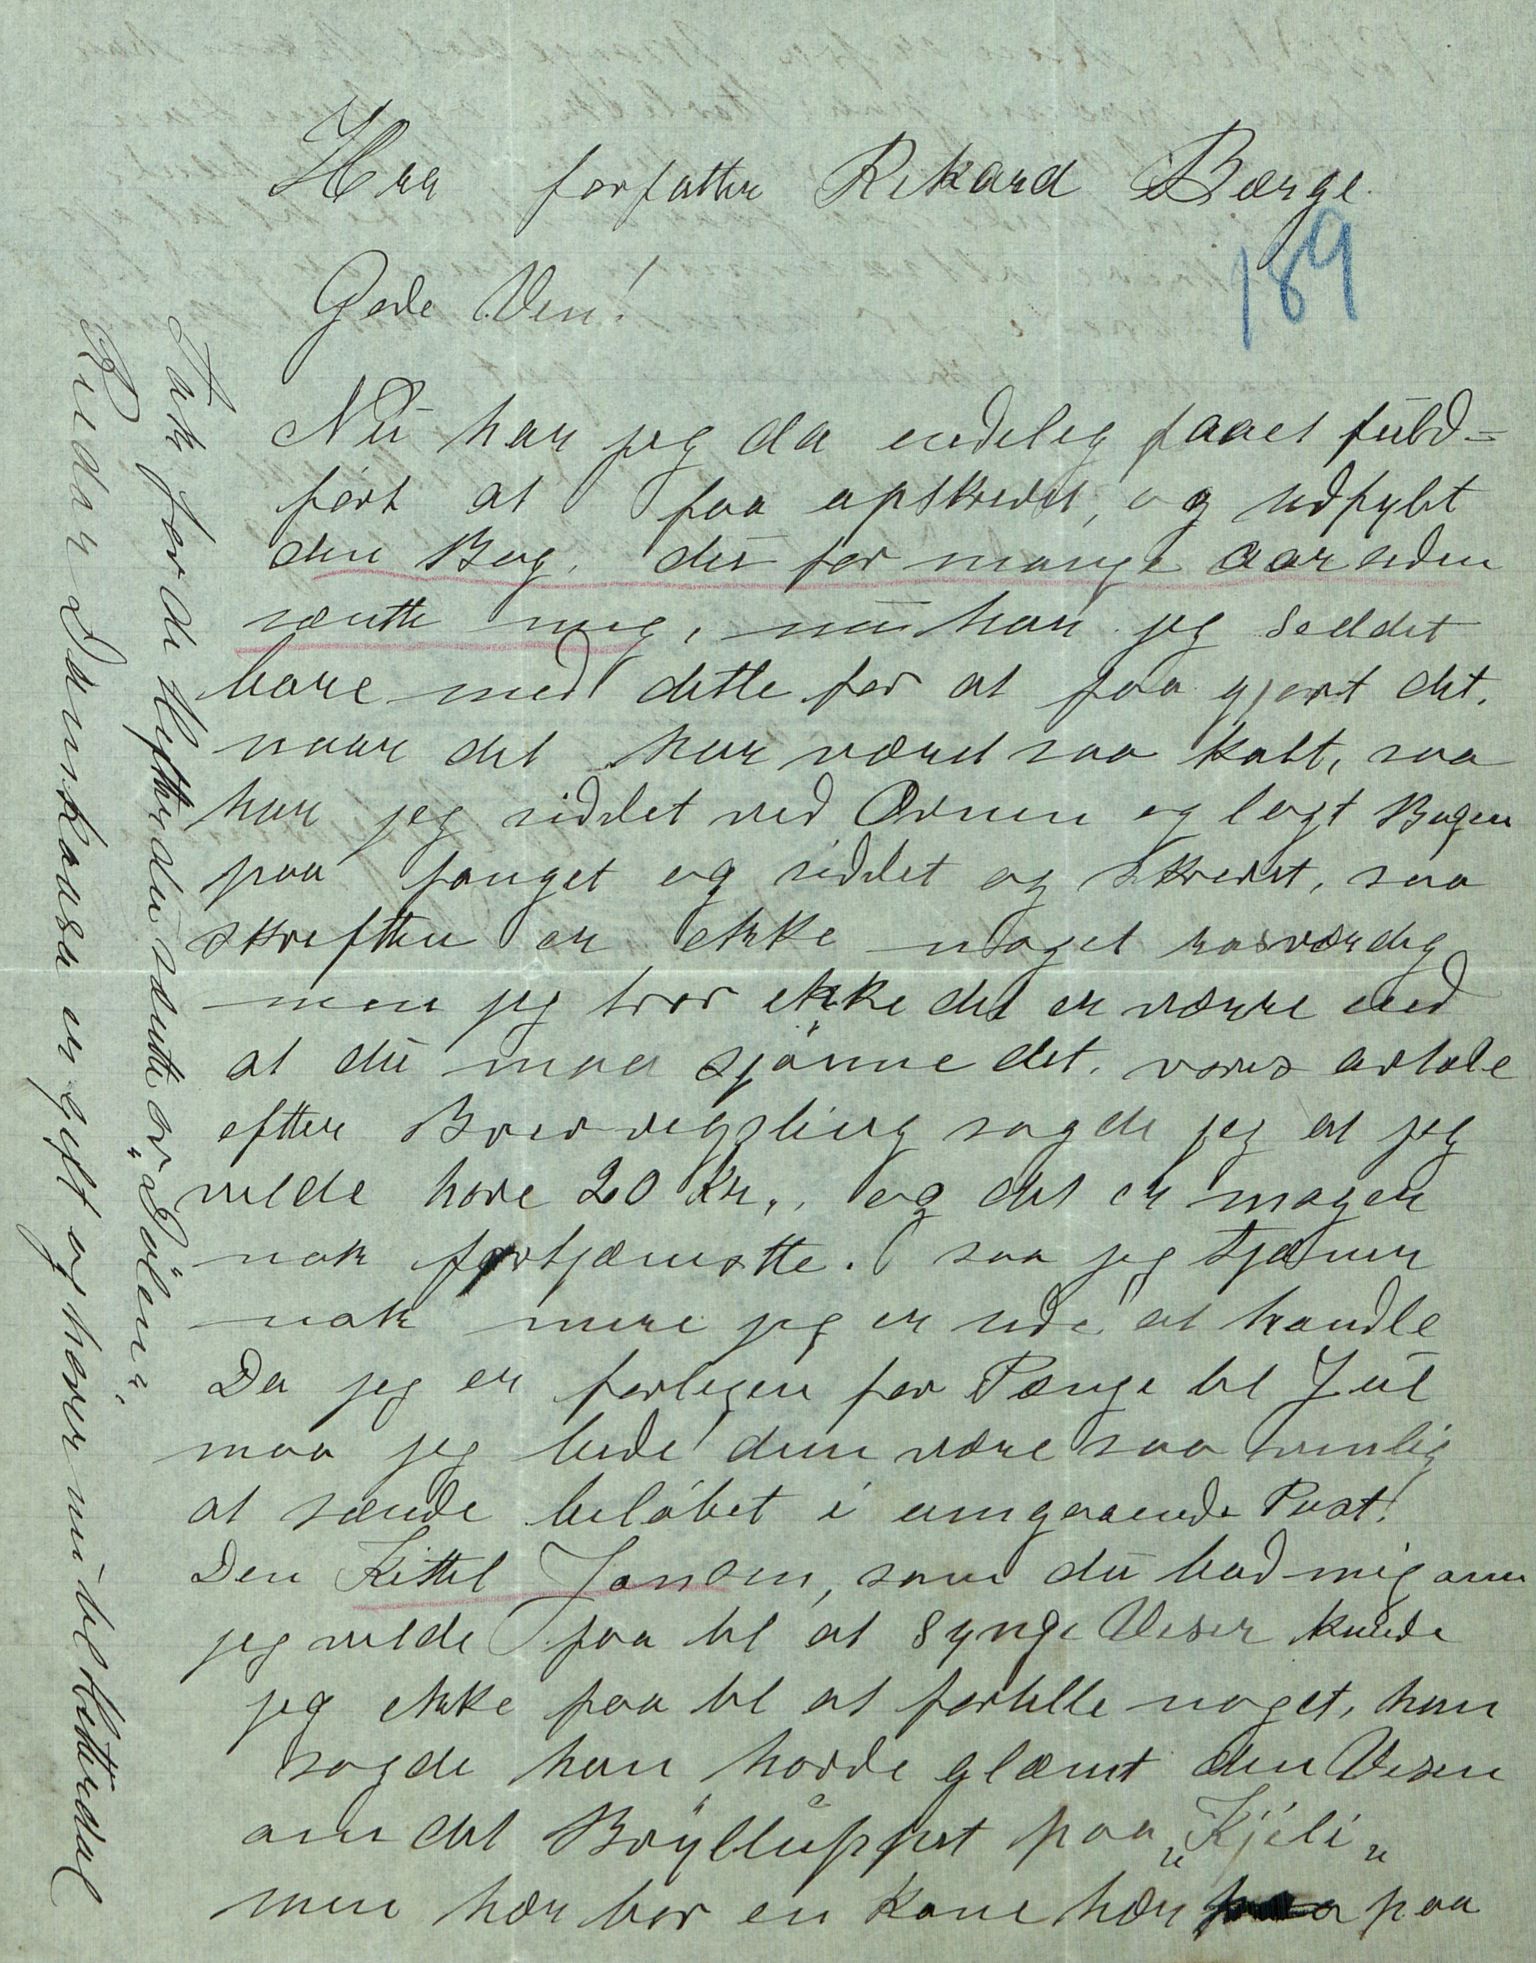 Hrr forfatter Rikard Berge.
189
Gode Ven!
Nu har jeg da endelig faaet fuld=
ført at faa opskrevet, og udfylt
den Bog. du for mange aar siden
sænte mig, nu har jeg seddet
bare med dette for at faa gjort det.
naar det har været saa kalt, saa
har jeg siddet ved Ovnen og lagt Bogen
paa fanget og siddet og skrevet, saa
skriften er ikke noget rosværdig
men jeg tror ikke det er værre end
at du maa sjønne det. vores avtale
efter Brevvegsling sagde jeg at jeg
vilde have 20 Kr,. og det er mager
nok fortjæneste. saa jeg tjæner
nok mere jeg er ude at handle
Da jeg er forlegen for Penge til Jul
maa jeg bede dem være saa venlig
at sænde beløbet i omgaaende Post!
Den Kittel Jonsen, som du bad mig om
jeg vilde faa til at synge Viser kunde
jeg ikke faa til at fortelle noget, han
sagde han havde glæmt den Visen
om det Bryllupet paa „Kjeli„
men hær bor en Kone hær paa
Tak for de Hefter du sænte av „Dølen„
Eindar Dærnkaasa er gift og hører nu til Hitterdal